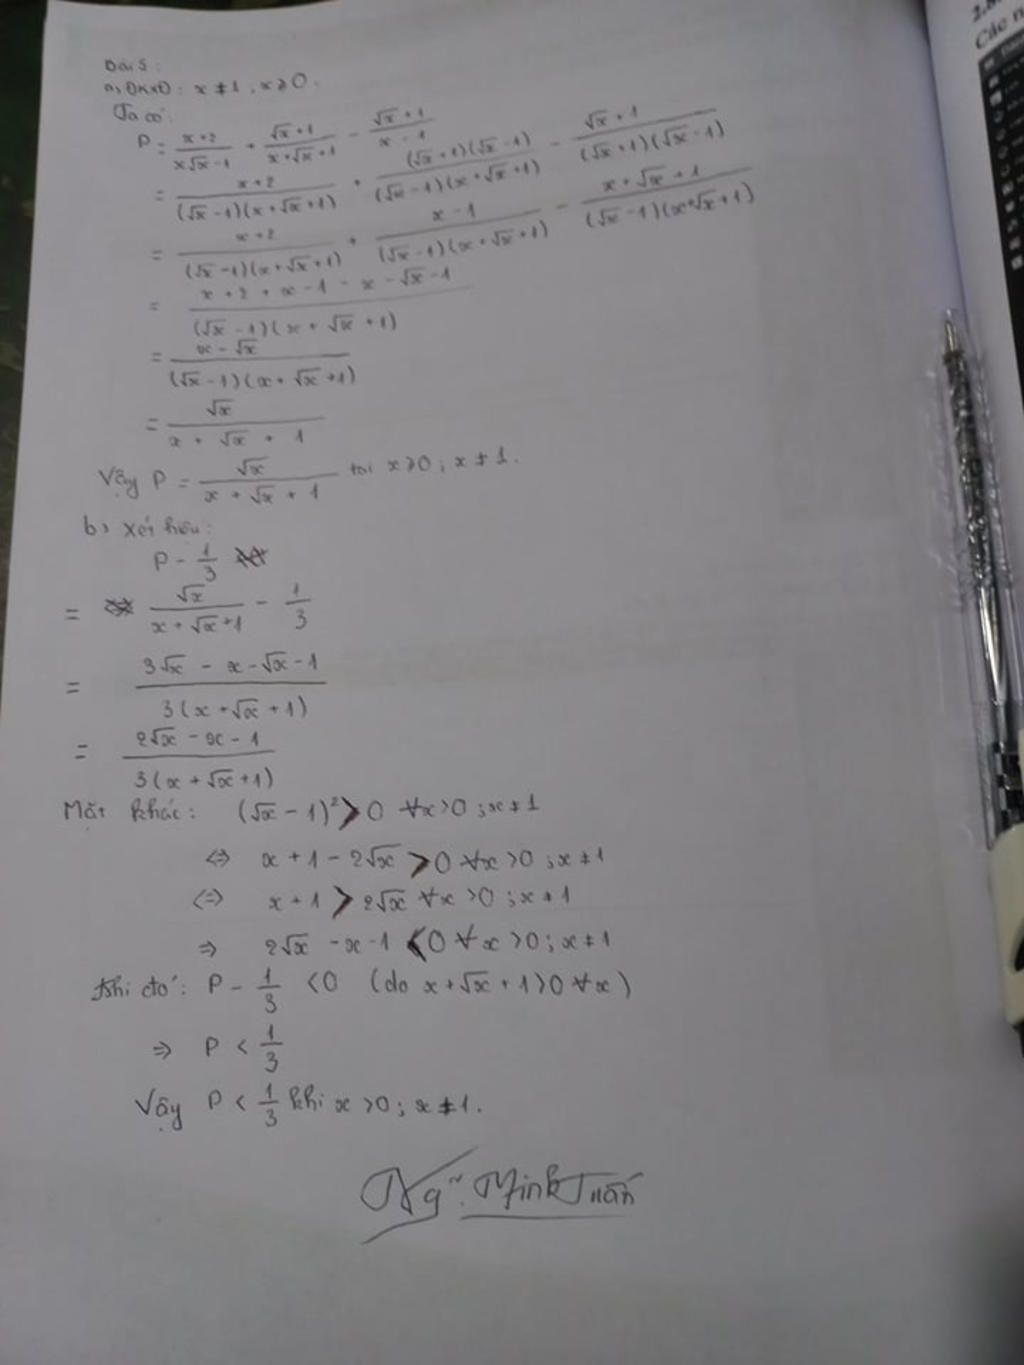 Bài 5:
a, ĐKXĐ: x ≠ 1, x ⩾ 0.
Ta có:
P = \frac{x+2}{x√x-1} + \frac{√x+1}{x+√x+1} - \frac{√x+1}{x-1}
= \frac{x+2}{(√x-1)(x+√x+1)} + \frac{(√x+1)(√x-1)}{(√x-1)(x+√x+1)} - \frac{√x+1}{(√x+1)(√x-1)}
= \frac{x+2}{(√x-1)(x+√x+1)} + \frac{x-1}{(√x-1)(x+√x+1)} - \frac{x+√x+1}{(√x-1)(x+√x+1)}
= \frac{x+2+x-1-x-√x-1}{(√x-1)(x+√x+1)}
= \frac{x-√x}{(√x-1)(x+√x+1)}
= \frac{√x}{x+√x+1}
Vậy P = \frac{√x}{x+√x+1} tại x ⩾ 0; x ≠ 1.
b, Xét hiệu:
P - \frac{1}{3}
= \frac{√x}{x+√x+1} - \frac{1}{3}
= \frac{3√x-x-√x-1}{3(x+√x+1)}
= \frac{2√x-x-1}{3(x+√x+1)}
Mặt khác: (√x-1)² > 0 ∀x>0; x≠1
⇔ x+1-2√x > 0 ∀x>0; x≠1
⇔ x+1 > 2√x ∀x>0; x≠1
⇒ 2√x-x-1 < 0 ∀x>0; x≠1
Khi đó: P - \frac{1}{3} < 0 (do x+√x+1>0 ∀x)
⇒ P < \frac{1}{3}
Vậy P < \frac{1}{3} khi x>0; x≠1.
Ng~. Minh Tuấn
2.
Các